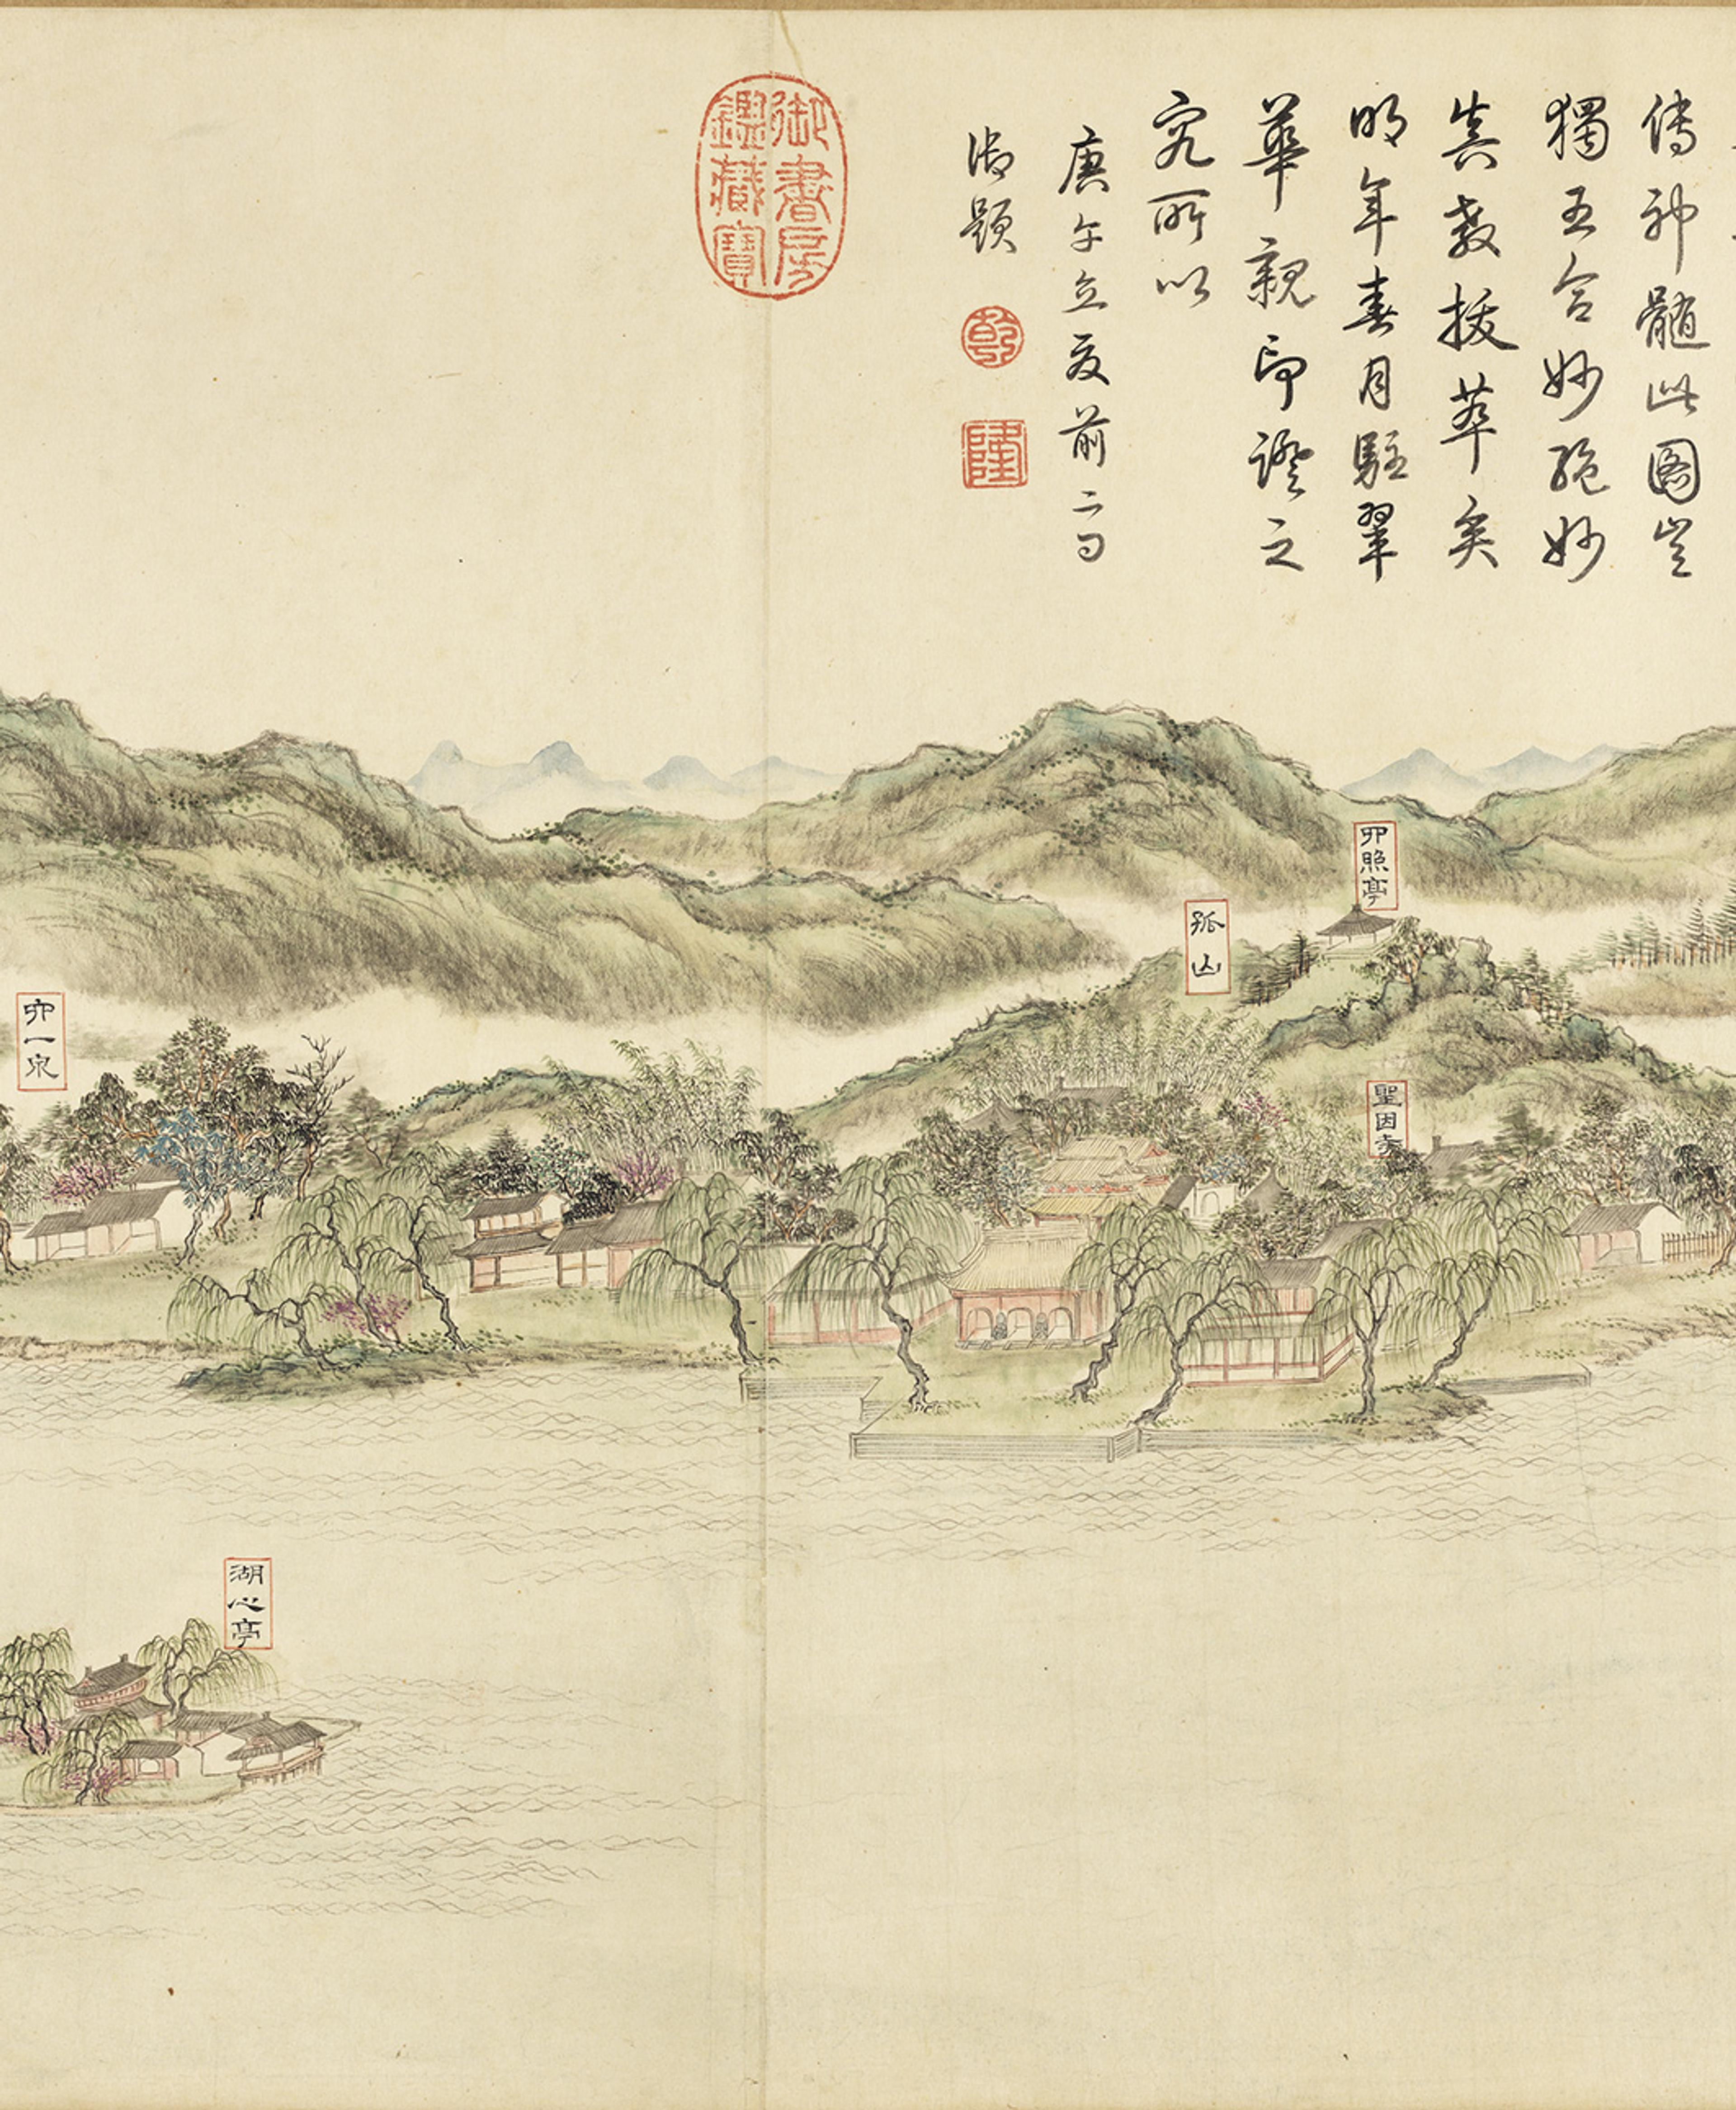 傳神髓此圖豈
獨五合妙絕妙
真教拔萃矣
明年春月駐翠
華親印證之
究所以
庚午立夏前二日
御題
乾
隆
御書房
鑑藏寶
四照亭
孤山
聖因寺
六一泉
湖心亭